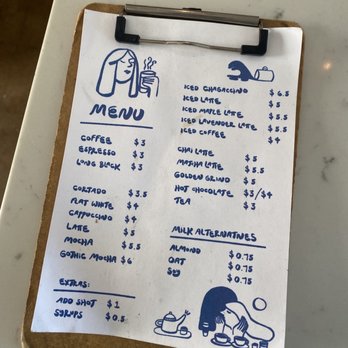 MENU
COFFEE $3
ESPRESSO $3
LONG BLACK $3
CORTADO $3.5
FLAT WHITE $4
CAPPUCCINO $4
LATTE $5
MOCHA $5.5
GOTHIC MOCHA $6
EXTRAS:
ADD SHOT $1
SYRUPS $0.5
ICED CHAGACCINO $6.5
ICED LATTE $5
ICED MAPLE LATTE $5.5
ICED LAVENDER LATTE $5.5
ICED COFFEE $4
CHAI LATTE $5
MATCHA LATTE $5.5
GOLDEN GRIND $5
HOT CHOCOLATE $3/$4
TEA $3
MILK ALTERNATIVES
ALMOND $0.75
OAT $0.75
SOY $0.75